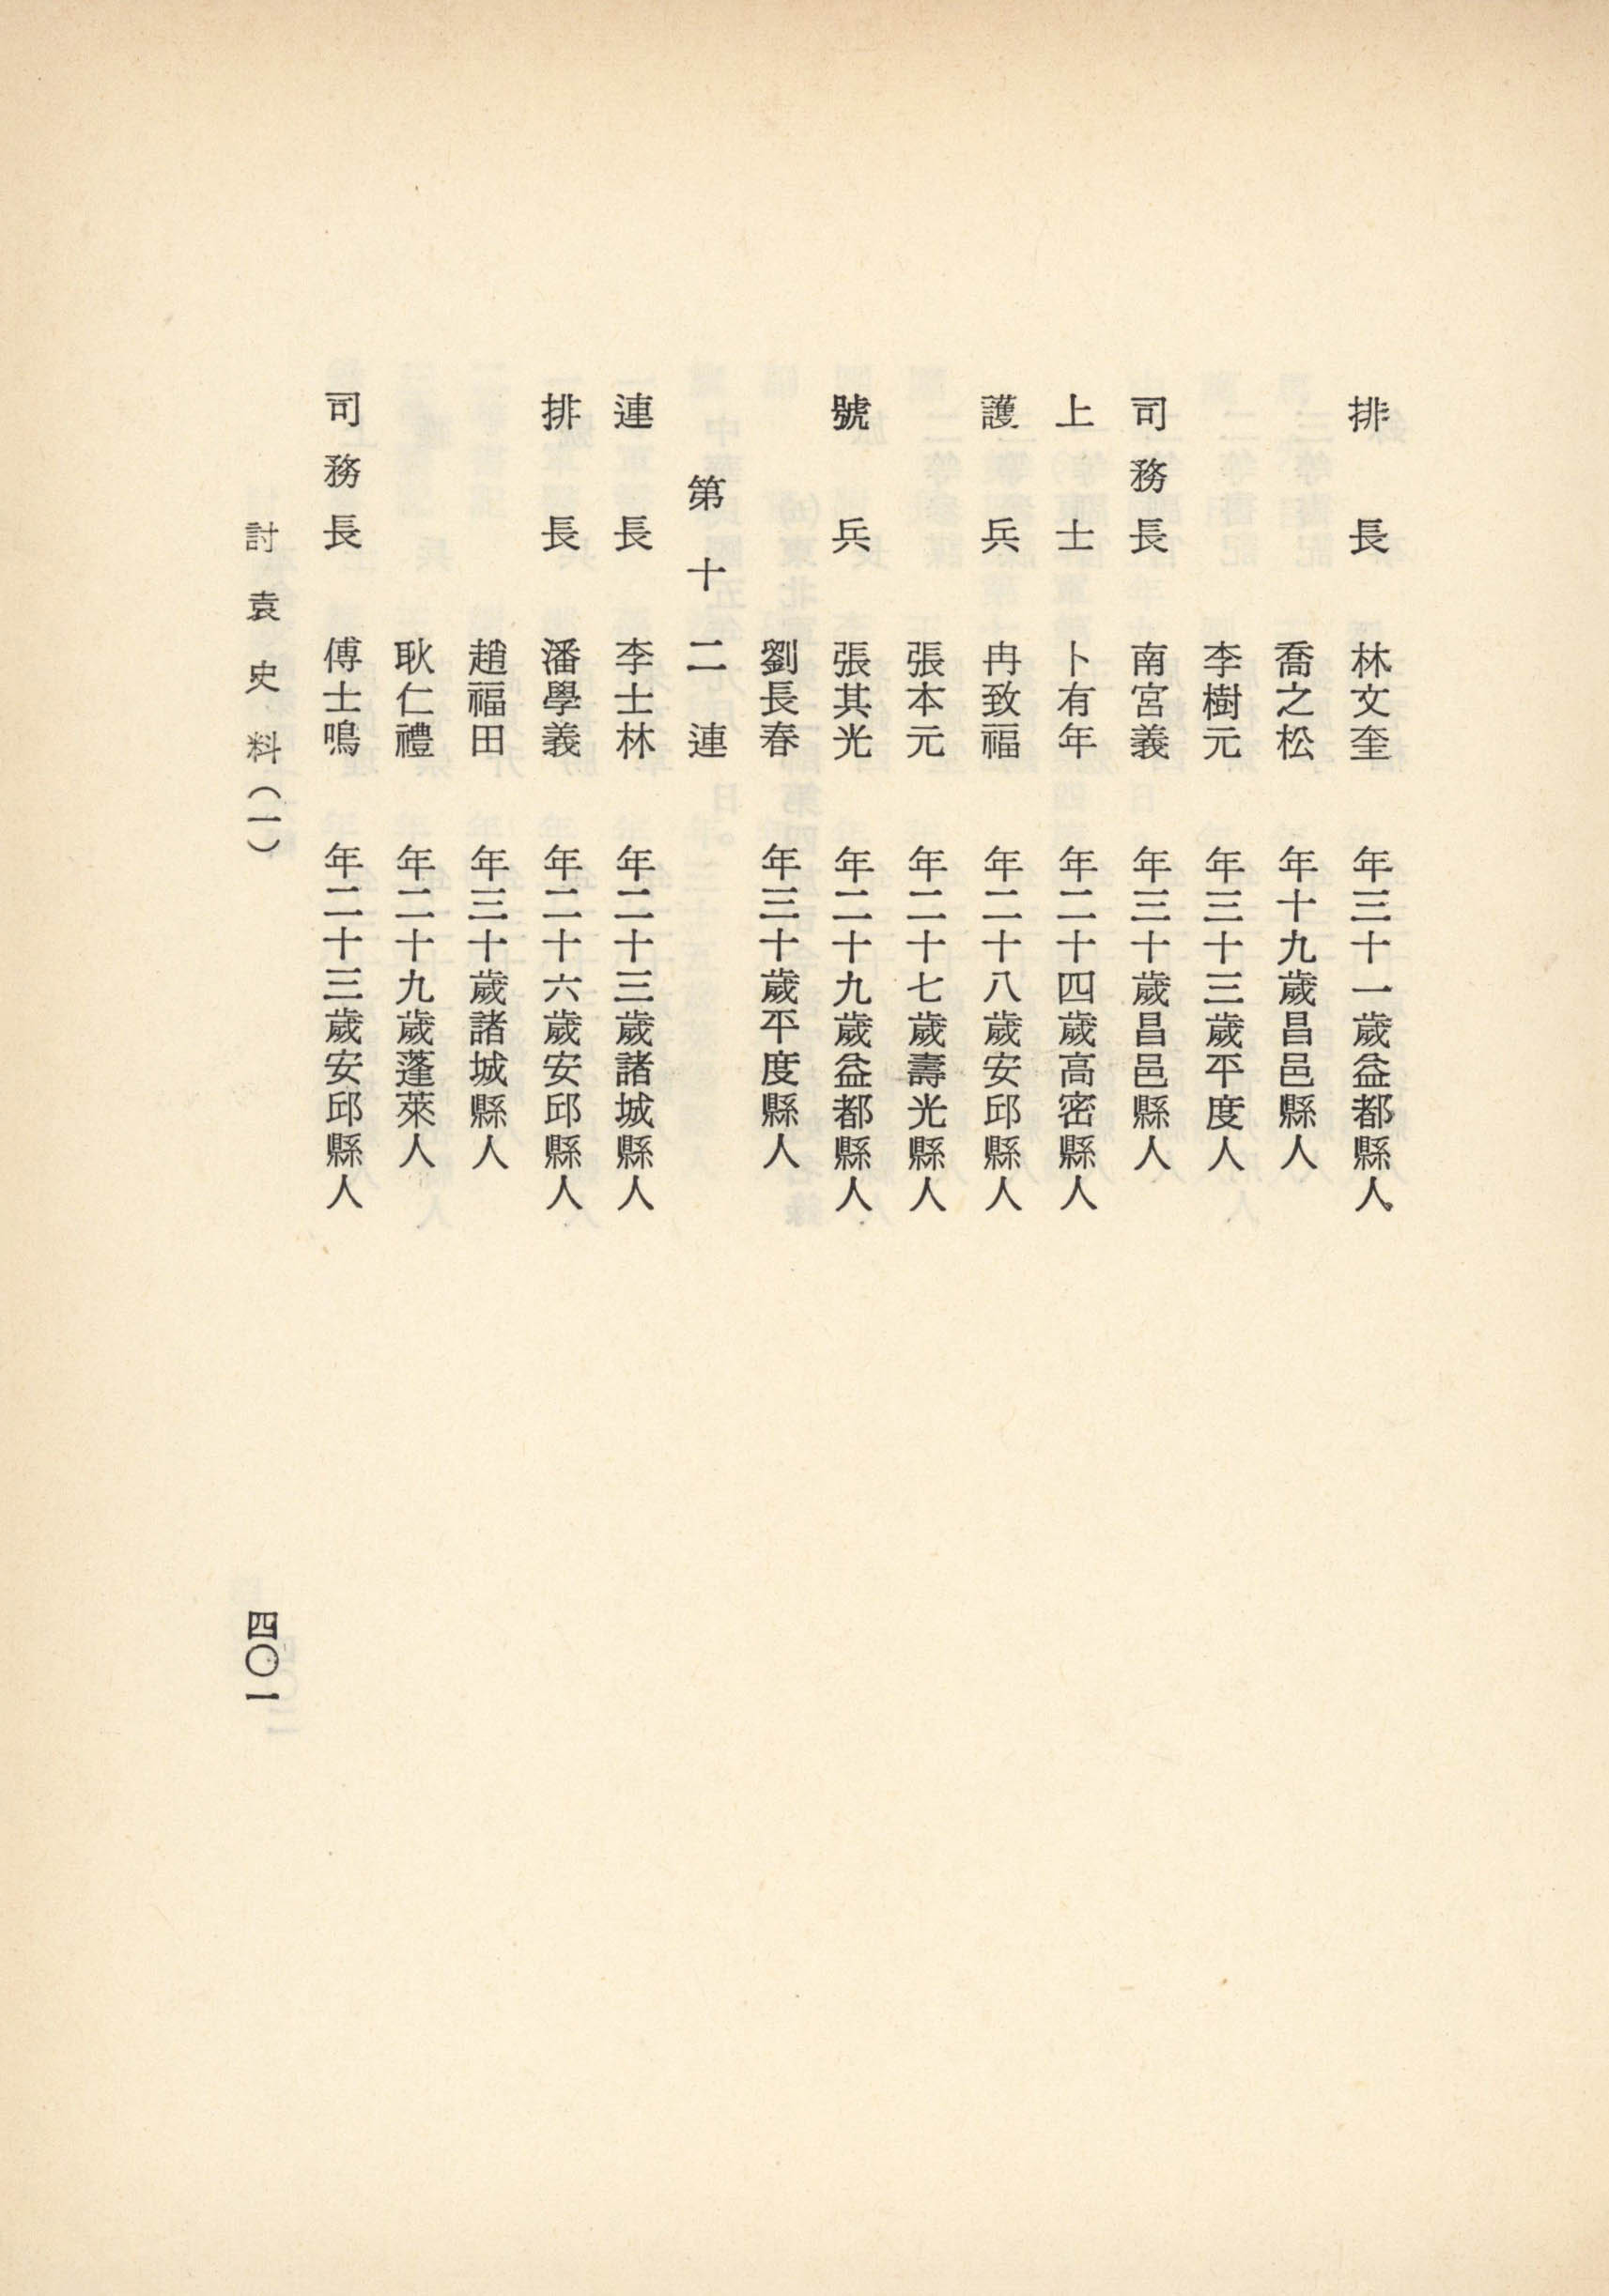 排長　林文奎　年三十一歲益都縣人
喬之松　年十九歲昌邑縣人
李樹元　年三十三歲平度人
司務長　南宮義　年三十歲昌邑縣人
上士　卜有年　年二十四歲高密縣人
護兵　冉致福　年二十八歲安邱縣人
張本元　年二十七歲壽光縣人
號兵　張其光　年二十九歲益都縣人
劉長春　年三十歲平度縣人
第十二連
連長　李士林　年二十三歲諸城縣人
排長　潘學義　年二十六歲安邱縣人
趙福田　年三十歲諸城縣人
耿仁禮　年二十九歲蓬萊人
司務長　傅士鳴　年二十三歲安邱縣人
討袁史料（一）
四〇一